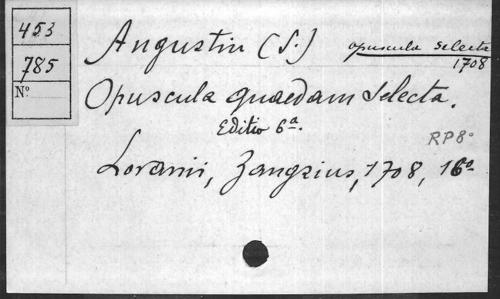 453
785
Nº
Augustin (S.) opuscula selecta
1708
Opuscula quaedam selecta.
Editio 6ª.
RP8º
Lovanii, Zangrius, 1708, 16º